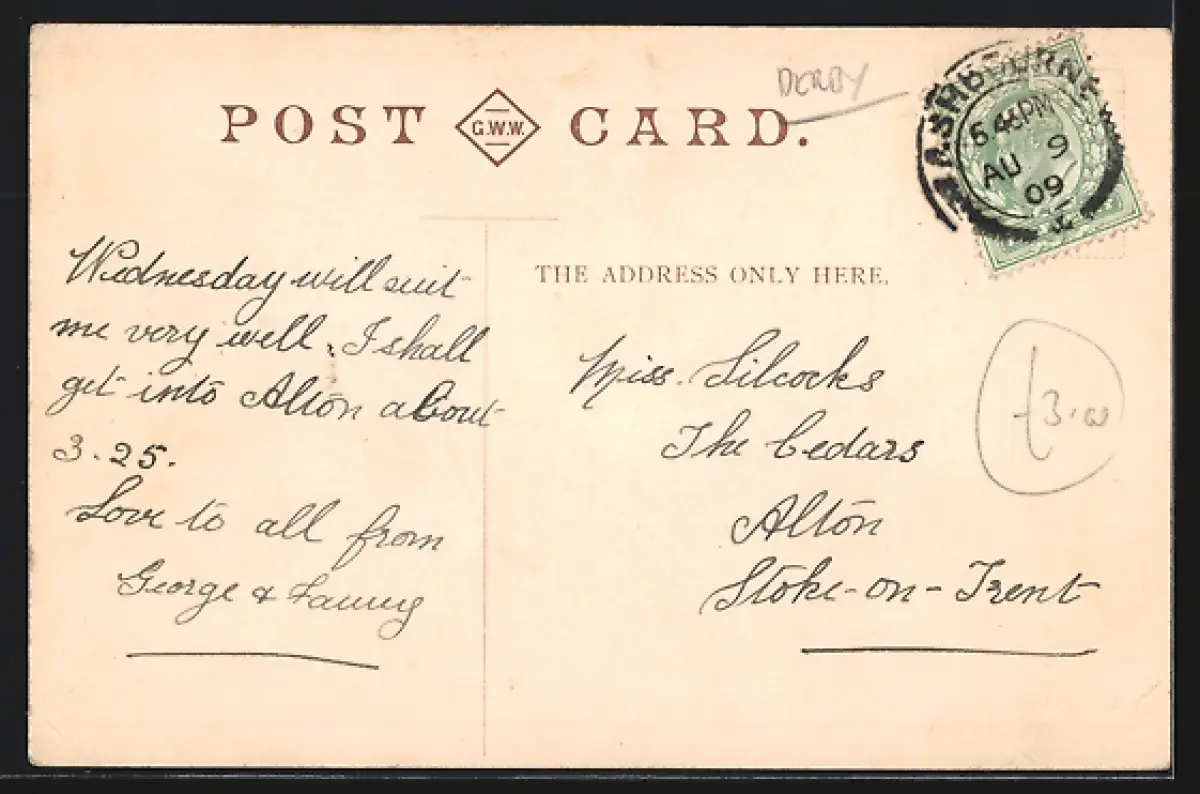 DERBY
POST G.W.W. CARD.
ASHBOURNE
5 45PM
AU 9
09
THE ADDRESS ONLY HERE.
Wednesday will suit
me very well. I shall
get into Alton about
3.25.
Love to all from
George & Fanny
Miss. Silcocks
The Cedars
Alton
Stoke-on-Trent